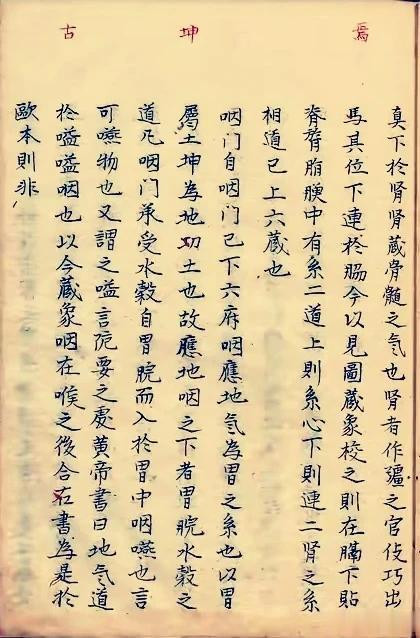 焉
坤
古
真下於肾肾藏骨髓之气也肾者作彊之官伎巧出
馬其位下連於脇今以見圖藏象校之則在膈下貼
脊膂脂腴中有系二道上則系心下則連二肾之系
相道已上六藏也
咽门自咽门已下六府咽應地气為胃之系也以胃
屬土坤為地切土也故應地咽之下者胃脘水穀之
道乃咽门承受水穀自胃脘而入於胃中咽嚥也言
可嚥物也又謂之嗌言阨要之處黄帝書曰地气道
於嗌嗌咽也以今藏象咽在喉之後合在書為是於
歐本則非